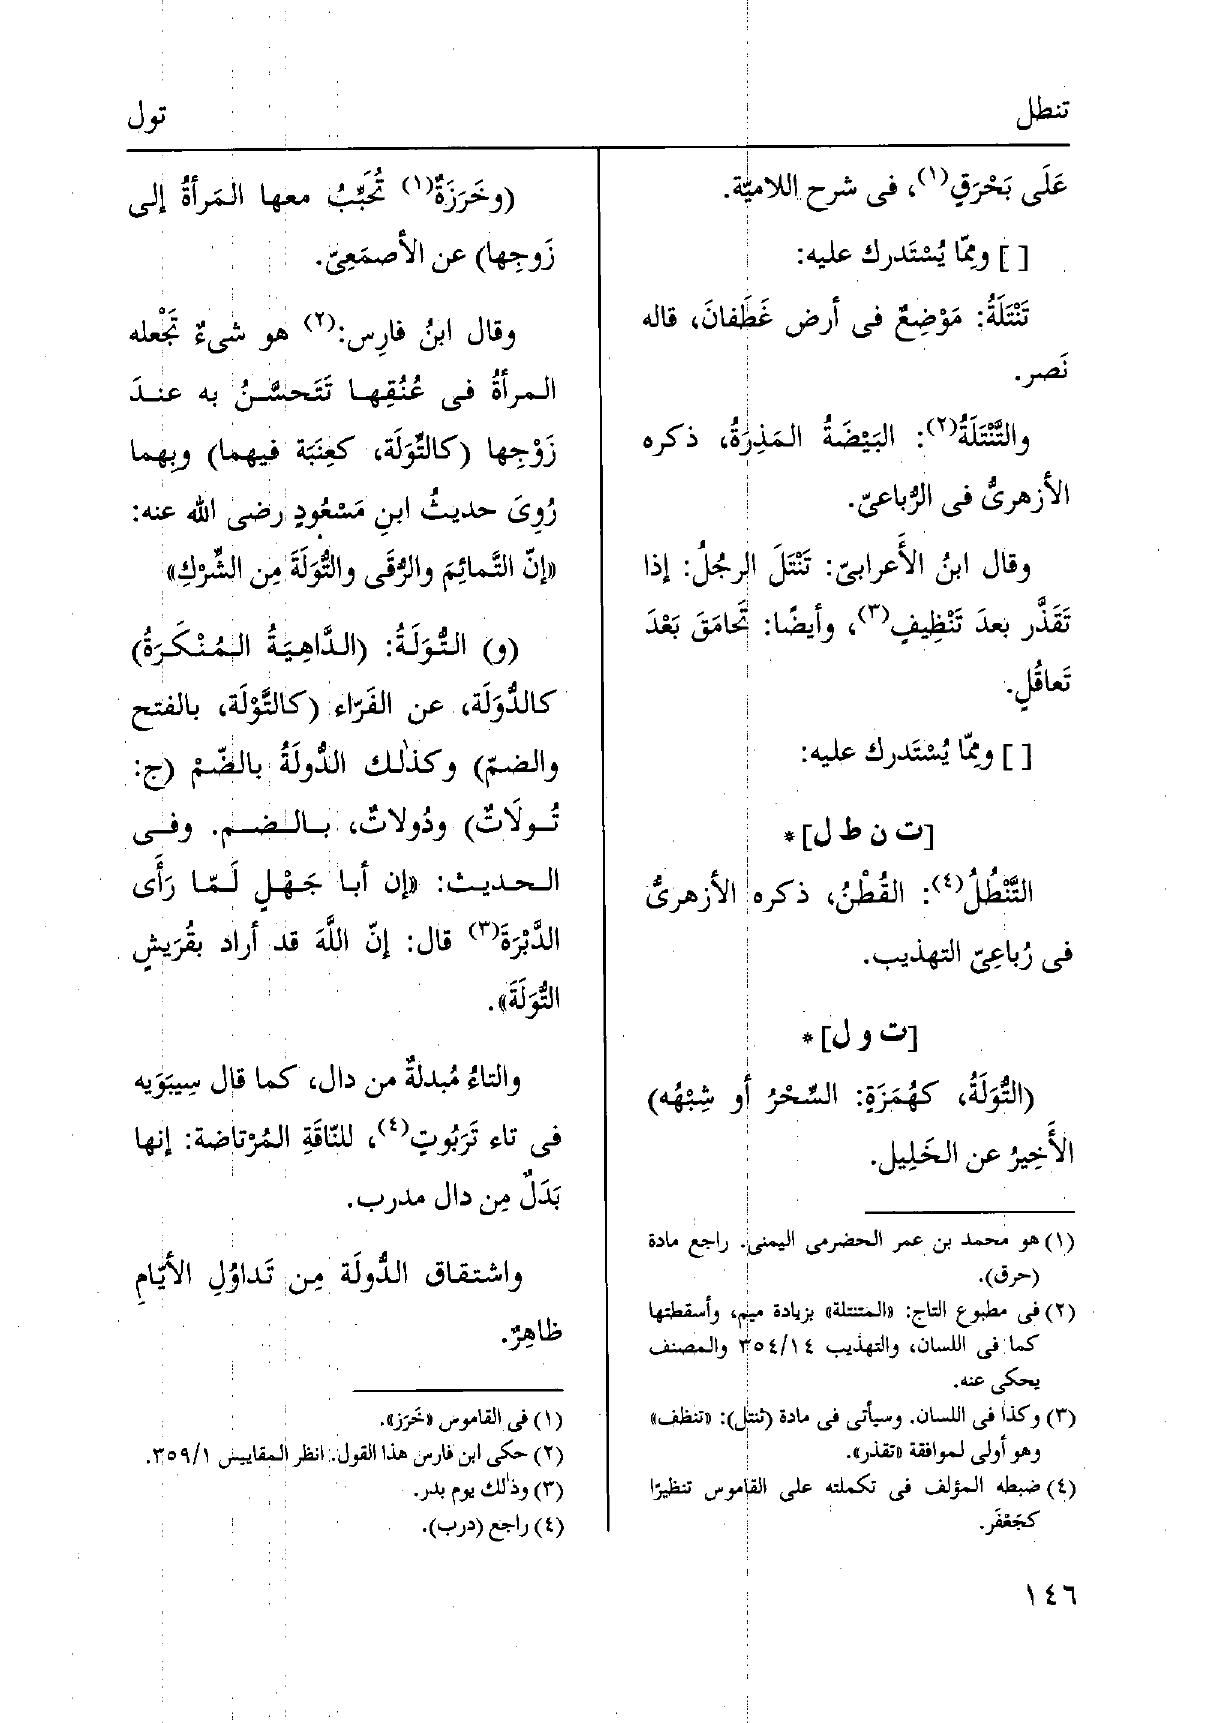 تنطل
تول
عَلَى بَحْرَقٍ(١)، فى شرح اللاميّة.
[ ] ومِمّا يُسْتَدرك عليه:
تَنْتَلَةُ: مَوْضِعٌ فى أرض غَطَفانَ، قاله
نَصر.
والتَّنْتَلَةُ(٢): البَيْضَةُ المَذِرَةُ، ذكره
الأزهرىُّ فى الرُّباعىّ.
وقال ابنُ الأَعرابىّ: تَنْتَلَ الرجُلُ: إذا
تَقَذَّر بعدَ تَنْظِيفٍ(٣)، وأيضًا: تَحامَقَ بَعْدَ
تَعاقُلٍ.
[ ] ومِمّا يُسْتَدرك عليه:
[ت ن ط ل]*
التَّنْطُلُ(٤): القُطْنُ، ذكره الأزهرىُّ
فى رُباعِىّ التهذيب.
[ت و ل]*
(التُّوَلَةُ، كهُمَزَةٍ: السِّحْرُ أو شِبْهُه)
الأَخِيرُ عن الخَلِيل.
(١) هو محمد بن عمر الحضرمى اليمنى. راجع مادة
(حرق).
(٢) فى مطبوع التاج: «المتنتلة» بزيادة ميم، وأسقطتها
كما فى اللسان، والتهذيب ٣٥٤/١٤ والمصنف
يحكى عنه.
(٣) وكذا فى اللسان. وسيأتى فى مادة (ثنتل): «تنظف»
وهو أولى لموافقة «تقذر».
(٤) ضبطه المؤلف فى تكملته على القاموس تنظيرًا
كجَعْفَر.
(وخَرَزَةٌ(١) تُحَبِّبُ معها المَرأةُ إلى
زَوجِها) عن الأصمَعِىّ.
وقال ابنُ فارِس:(٢) هو شىءٌ تَجْعله
المرأةُ فى عُنُقِها تَتَحسَّنُ به عندَ
زَوْجِها (كالتِّوَلَة، كعِنَبَة فيهما) وبِهما
رُوِىَ حديثُ ابنِ مَسْعُودٍ رضى الله عنه:
«إنّ التَّمائِمَ والرُّقَى والتُّوَلَةَ مِن الشِّرْكِ»
(و) التُّوَلَةُ: (الدَّاهِيَةُ المُنْكَرَةُ)
كالدُّوَلَة، عن الفَرّاء (كالتَّوْلَة، بالفتح
والضمّ) وكذٰلك الدُّولَةُ بالضّمْ (ج:
تُولَاتٌ) ودُولاتٌ، بالضم. وفى
الحديث: «إن أبا جَهْلٍ لَمّا رَأَى
الدَّبْرَةَ(٣) قال: إنّ اللَّهَ قد أراد بقُرَيشٍ
التُّوَلَةَ».
والتاءُ مُبدلةٌ من دال، كما قال سِيبَوَيه
فى تاء تَرَبُوتٍ(٤)، للنّاقَةِ المُرْتاضة: إنها
بَدَلٌ مِن دال مدرب.
واشتقاق الدُّولَة مِن تَداوُلِ الأيّامِ
ظاهِرٌ.
(١) فى القاموس «خَرَز».
(٢) حكى ابن فارس هذا القول. انظر المقاييس ٣٥٩/١.
(٣) وذٰلك يوم بدر.
(٤) راجع (درب).
١٤٦